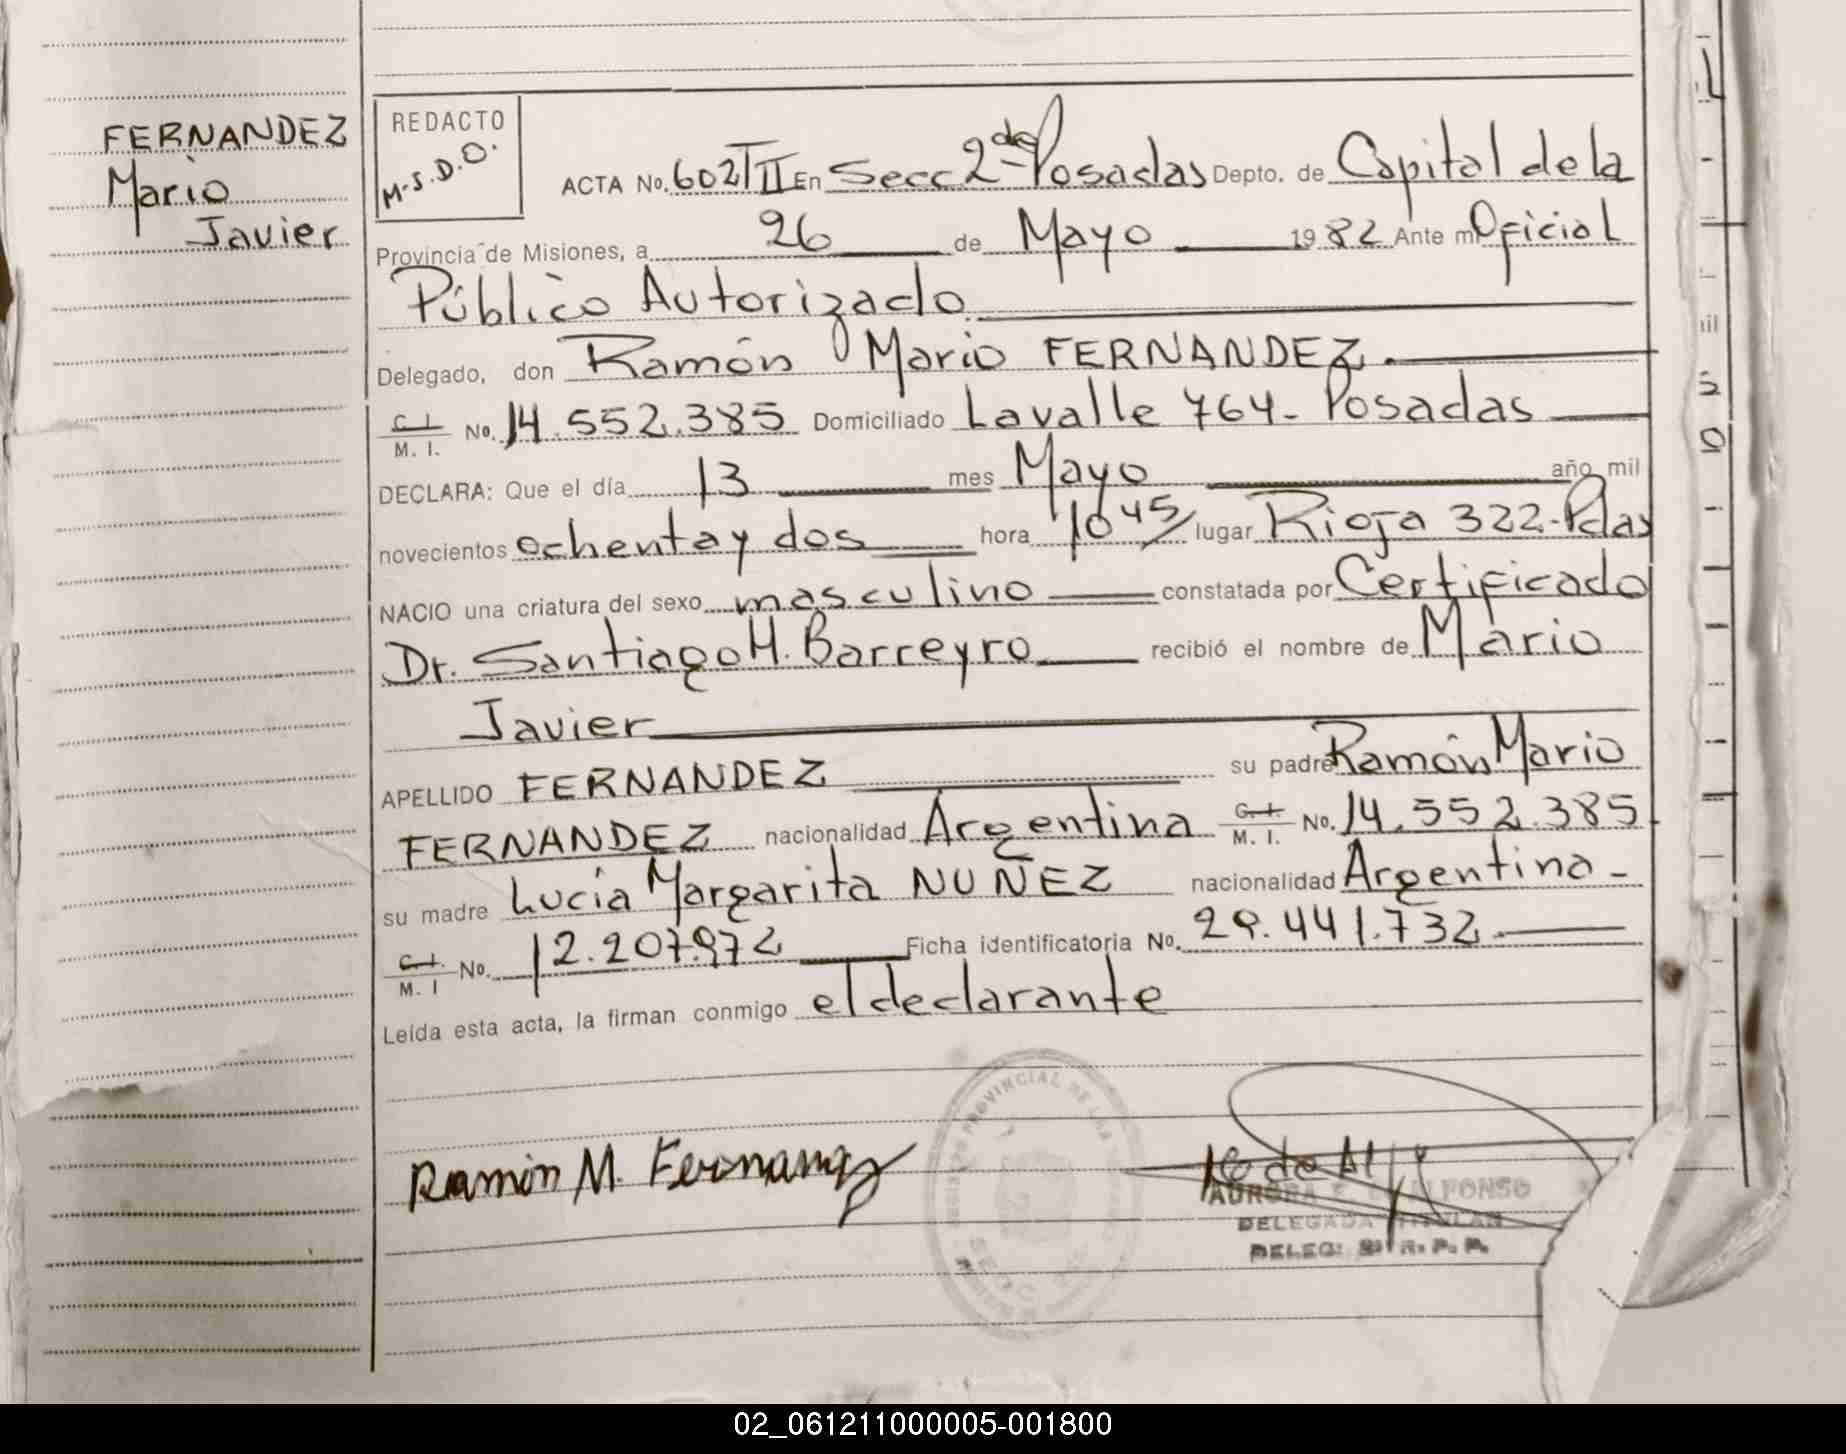 FERNANDEZ
Mario
Javier
REDACTO
M.S.D.O.
ACTA No. 602 T II En Secc 2da Posadas Depto. de Capital de la
Provincia de Misiones, a 26 de Mayo 1982 Ante mí Oficial
Público Autorizado
Delegado, don Ramón Mario FERNANDEZ.
C. I. M. I. No. 14.552.385 Domiciliado Lavalle 764- Posadas
DECLARA: Que el día 13 mes Mayo año mil
novecientos ochenta y dos hora 10 45 lugar Rioja 322-Pdas
NACIO una criatura del sexo masculino constatada por Certificado
Dr. Santiago H. Barreyro recibió el nombre de Mario
Javier
APELLIDO FERNANDEZ su padre Ramón Mario
FERNANDEZ nacionalidad Argentina C. I. M. I. No. 14.552.385
su madre Lucía Margarita NUÑEZ nacionalidad Argentina -
C. I. M. I No. 12.207.972 Ficha identificatoria No. 29.441.732.
Leída esta acta, la firman conmigo el declarante
Ramón M. Fernandez
REGISTRO PROVINCIAL DE LAS
AURORA ALFONSO
DELEGADA TITULAR
DELEG. 2ª R. P. P.
02_061211000005-001800